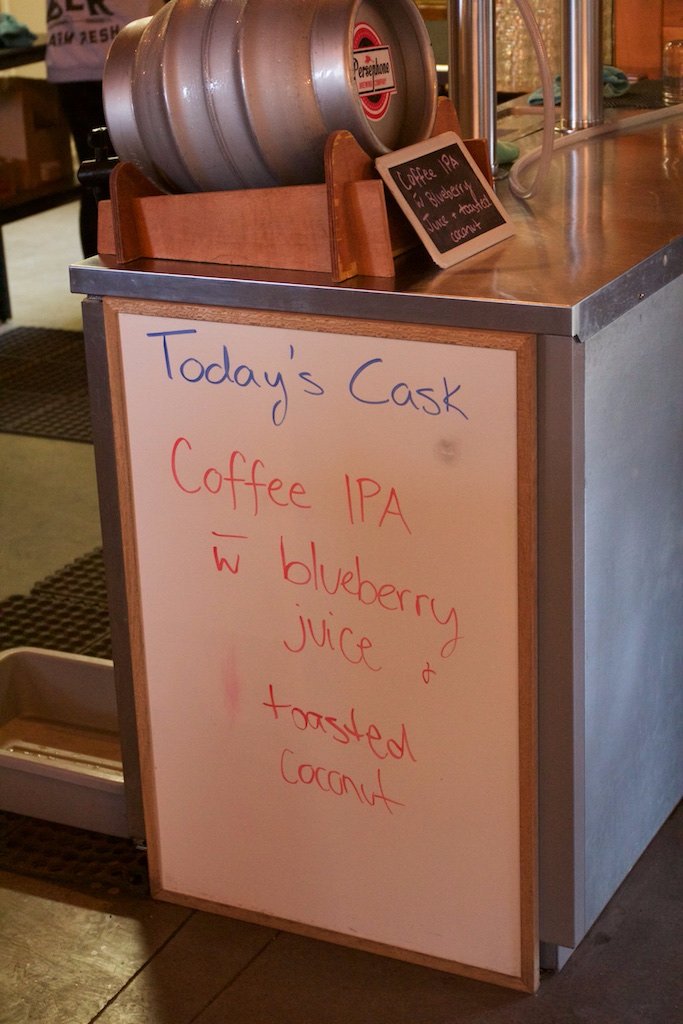 Persephone
BREWING COMPANY
Coffee IPA
w̄ Blueberry
Juice + toasted
coconut
Today's Cask
Coffee IPA
w̄ blueberry
juice &
toasted
coconut